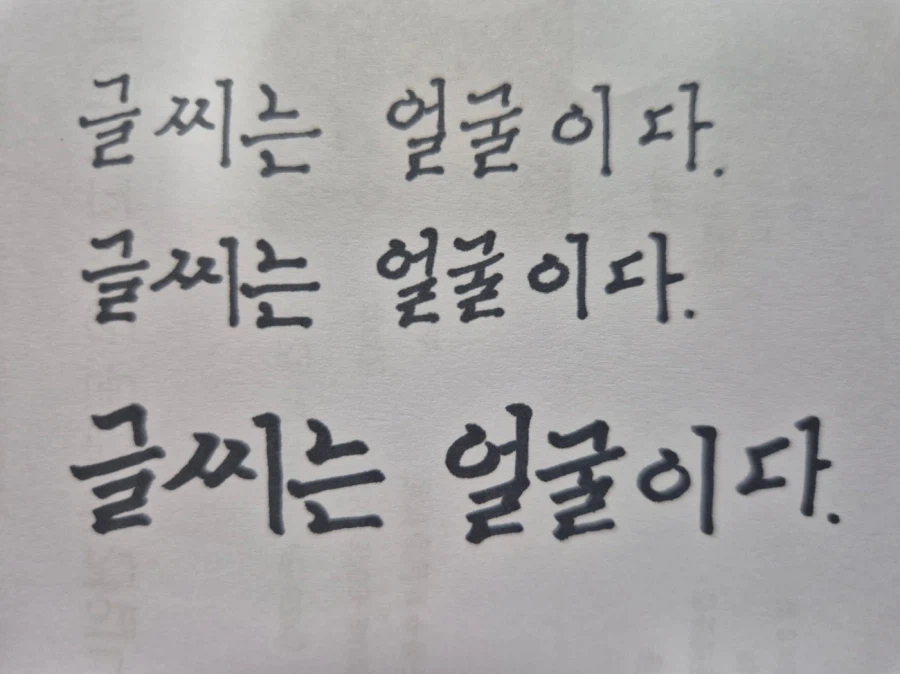 글씨는 얼굴이다.
글씨는 얼굴이다.
글씨는 얼굴이다.